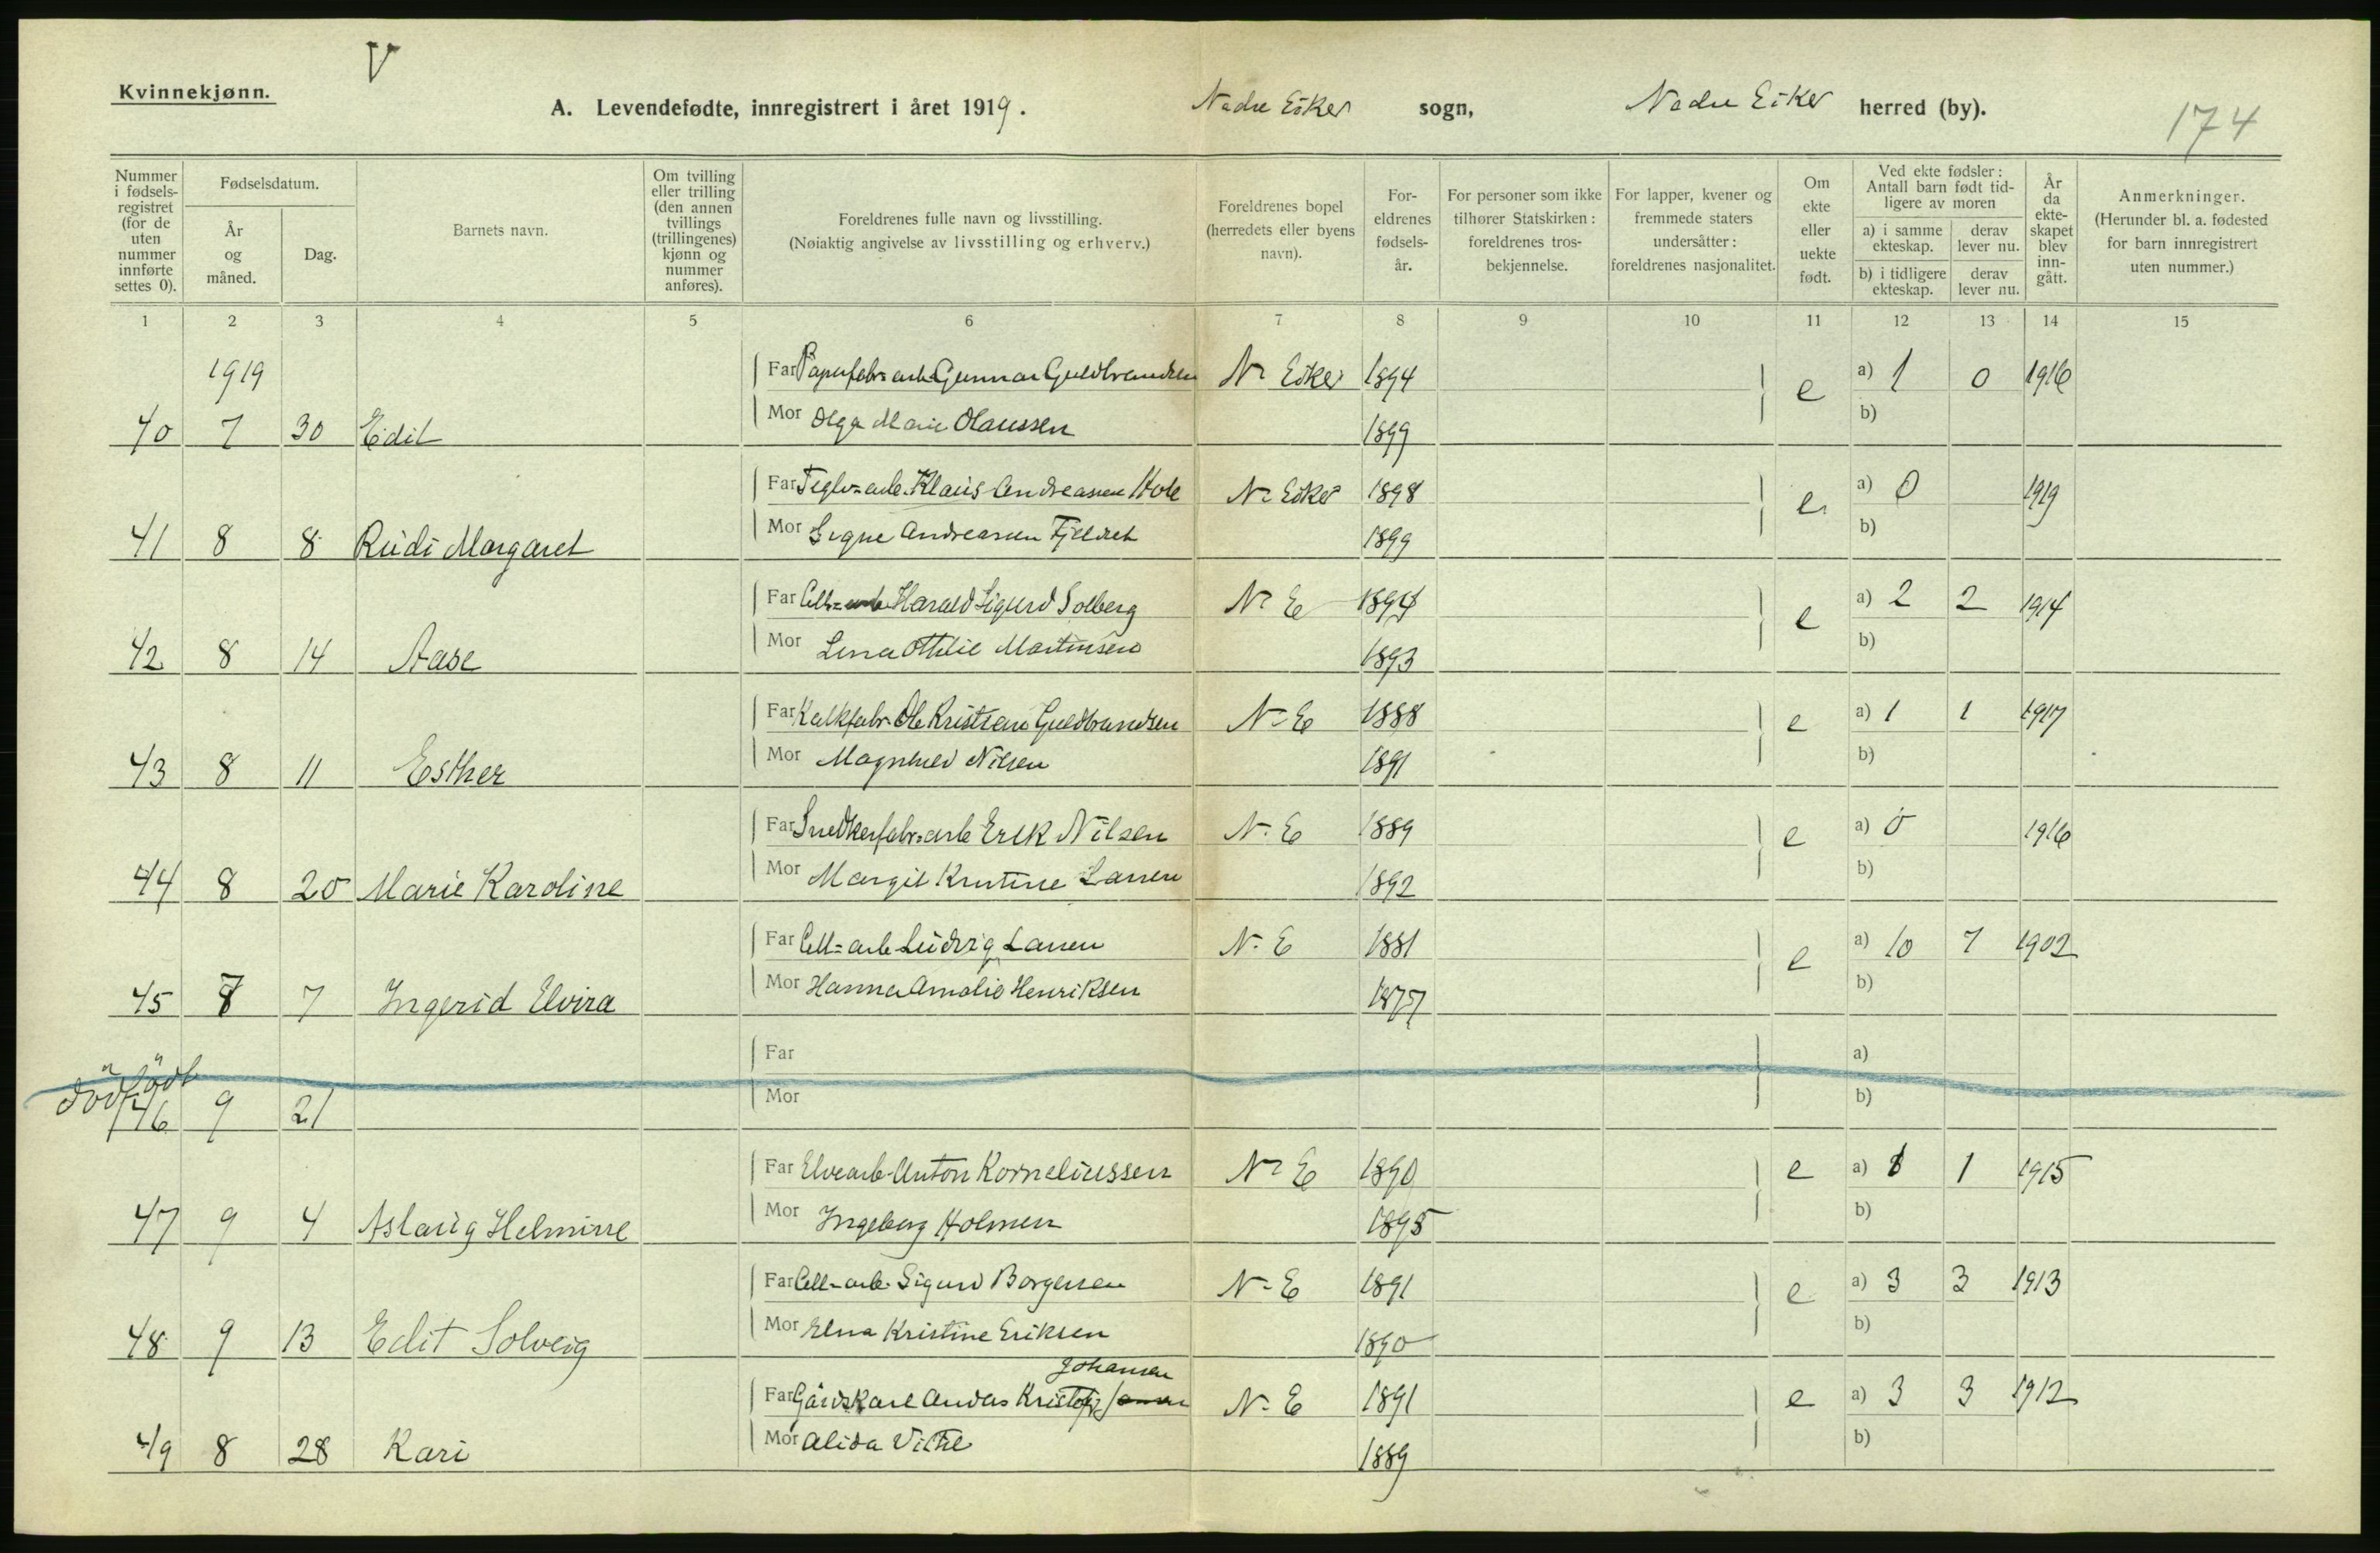 V
Kvinnekjønn.
A. Levendefødte, innregistrert i året 1919. Nedre Eiker sogn, Nedre Eiker herred (by).
174
Nummer i fødsels-registret (for de uten nummer innførte settes 0).
Fødselsdatum.
År og måned.
Dag.
Barnets navn.
Om tvilling eller trilling (den annen tvillings (trillingenes) kjønn og nummer anføres).
Foreldrenes fulle navn og livsstilling.
(Nøiaktig angivelse av livsstilling og erhverv.)
Foreldrenes bopel (herredets eller byens navn).
For-eldrenes fødsels-år.
For personer som ikke tilhører Statskirken: foreldrenes tros-bekjennelse.
For lapper, kvener og fremmede staters undersåtter: foreldrenes nasjonalitet.
Om ekte eller uekte født.
Ved ekte fødsler: Antall barn født tid-ligere av moren
a) i samme ekteskap.
derav lever nu.
b) i tidligere ekteskap.
derav lever nu.
År da ekte-skapet blev inn-gått.
Anmerkninger.
(Herunder bl. a. fødested for barn innregistrert uten nummer.)
1 2 3 4 5 6 7 8 9 10 11 12 13 14 15
1919 Far Papirfabr=arb. Gunnar Guldbrandsen Nr Eiker 1894 e a) 1 0 1916
40 7 30 Edit Mor Olga Marie Olaussen 1899 b)
Far Teglv=arb. Klaus Andreassen Hole Nr Eiker 1898 e a) 0 1919
41 8 8 Rudi Margaret Mor Signe Andreassen 1899 b)
Far Cell=arb Harald Sigurd Solberg Nr E 1894 e a) 2 2 1914
42 8 14 Aase Mor Lena Ottilie Martinsen 1893 b)
Far Kalkfabr. Ole Kristian Guldbrandsen N-E 1888 e a) 1 1 1917
43 8 11 Esther Mor Magnhild Nilsen 1891 b)
Far Snedkerfabr=arb Erik Nilsen N. E 1889 e a) 0 1916
44 8 20 Marie Karoline Mor Margit Kristine Larsen 1892 b)
Far Cell=arb Ludvig Larsen N. E 1881 e a) 10 7 1902
45 7 7 Ingerid Elvira Mor Hanna Amalie Henriksen 1877 b)
dödfödt Far a)
46 9 21 Mor b)
Far Elvearb. Anton Korneliussen Nr E 1890 e a) 1 1 1915
47 9 4 Aslaug Helmine Mor Ingeborg Holmen 1895 b)
Far Cell=arb. Sigurd Borgersen N-E 1891 e a) 3 3 1913
48 9 13 Edit Solveig Mor Elna Kristine Eriksen 1890 b)
Johansen
Far Gårdskarl Andas Kristofr N. E 1891 e a) 3 3 1912
49 8 28 Kari Mor Alida 1889 b)